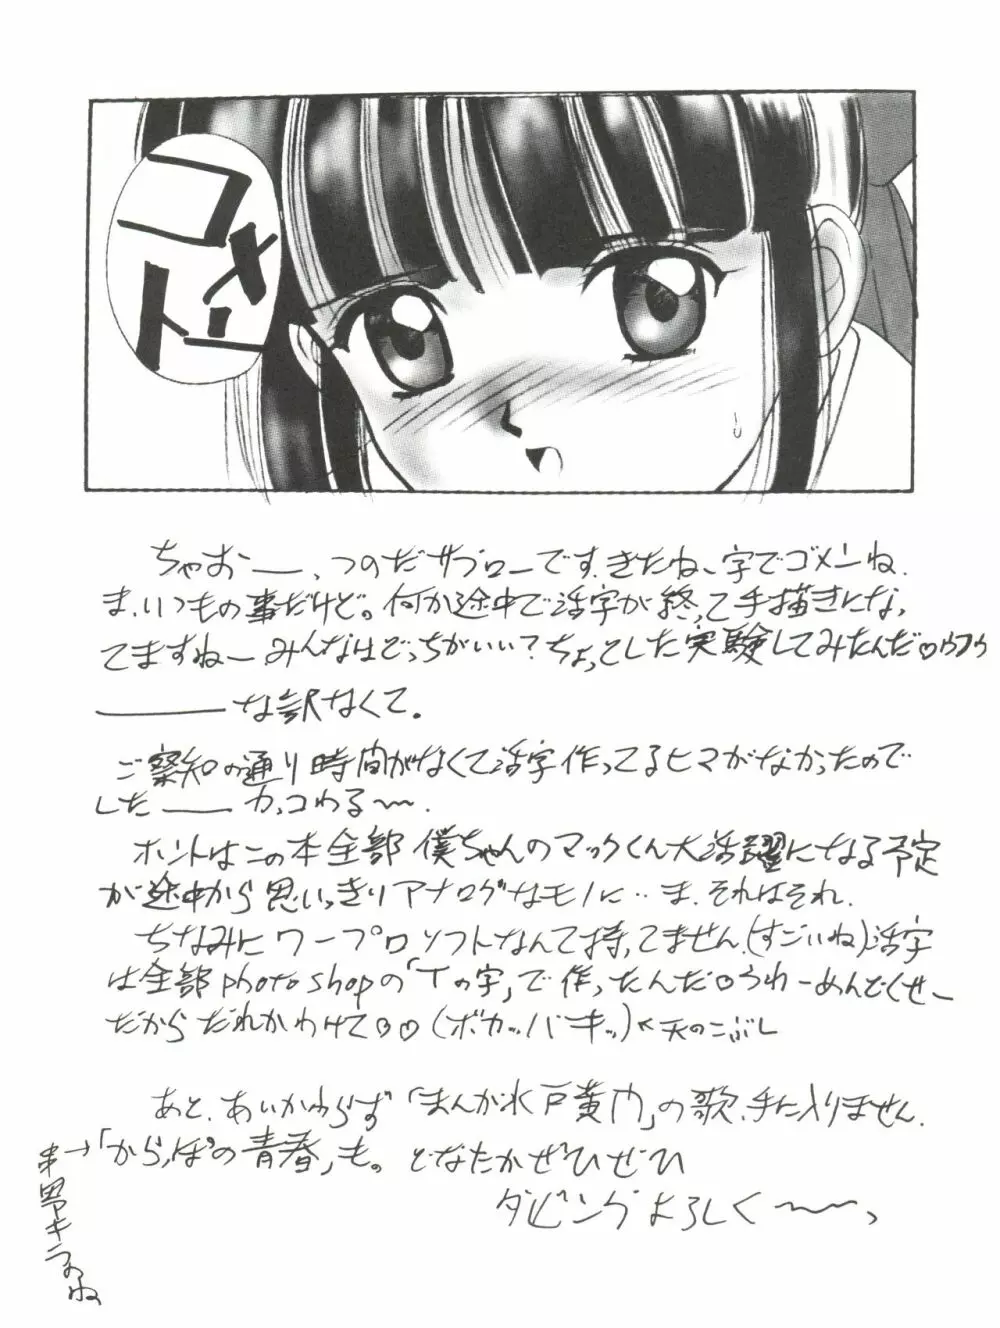 コメント
ちゃおー、つのだサブローです。きたねー字でゴメンね。
ま、いつもの事だけど。何か途中で活字が終って手描きになっ
てますねーみんなはどっちがいい？ちょっとした実験してみたんだ♡ウフウ
――な訳なくて。
ご察知の通り時間がなくて活字作ってるヒマがなかったので
した――カッコわる〜〜。
ホントはこの本全部僕ちゃんのマックくん大活躍になる予定
が途中から思いっきりアナログなモノに…ま、それはそれ。
ちなみにワープロソフトなんて持ってません。(すごいね)活字
は全部photo shopの「Tの字」で作ったんだ♡うわーめんどくせー
だからだれかわけて♡♡(ボカッバキッ)←天のこぶし
あと、あいかわらず「まんが水戸黄門」の歌、手に入りません。
「からっぽの青春」も。どなたかぜひぜひ
ダビングよろしく〜〜っ
→串田アキラのね